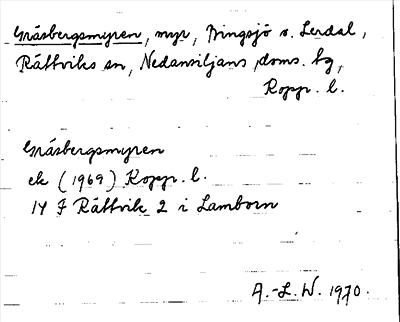 Gråsbergsmyren, myr, Bingsjö o. Lerdal,
Rättviks sn, Nedansiljans doms. hg,
Kopp. l.
Gråsbergsmyren
ek (1969) Kopp. l.
14 F Rättvik 2 i Lamborn
A.-L. W. 1970.